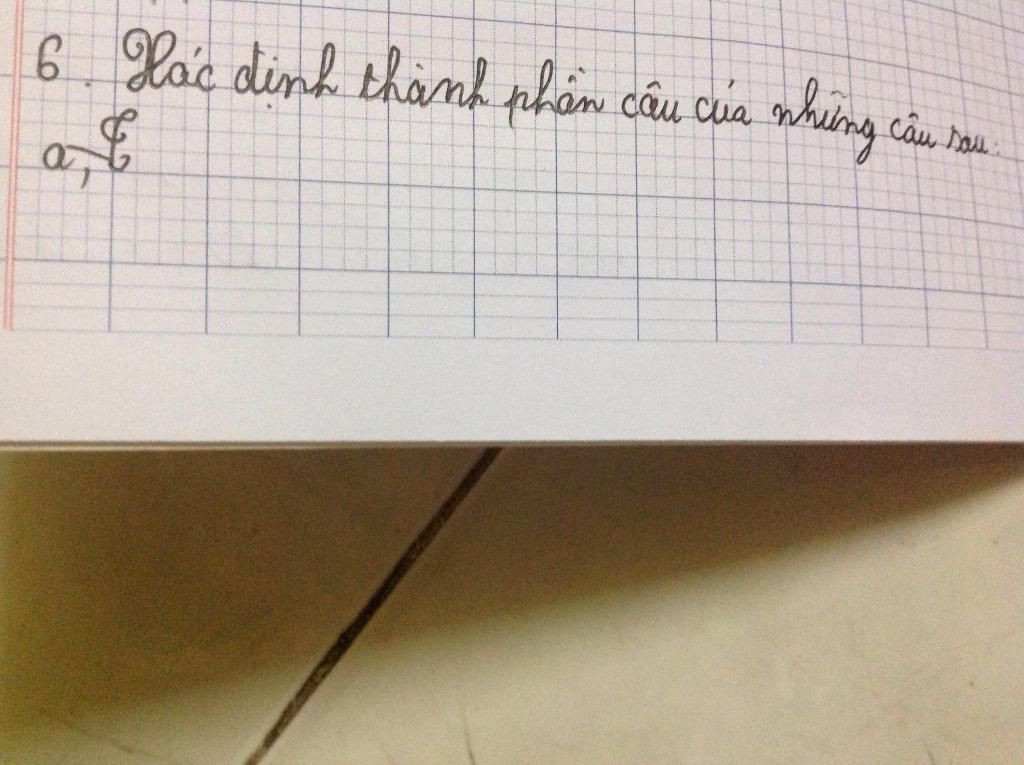 6. Xác định thành phần câu của những câu sau:
a,